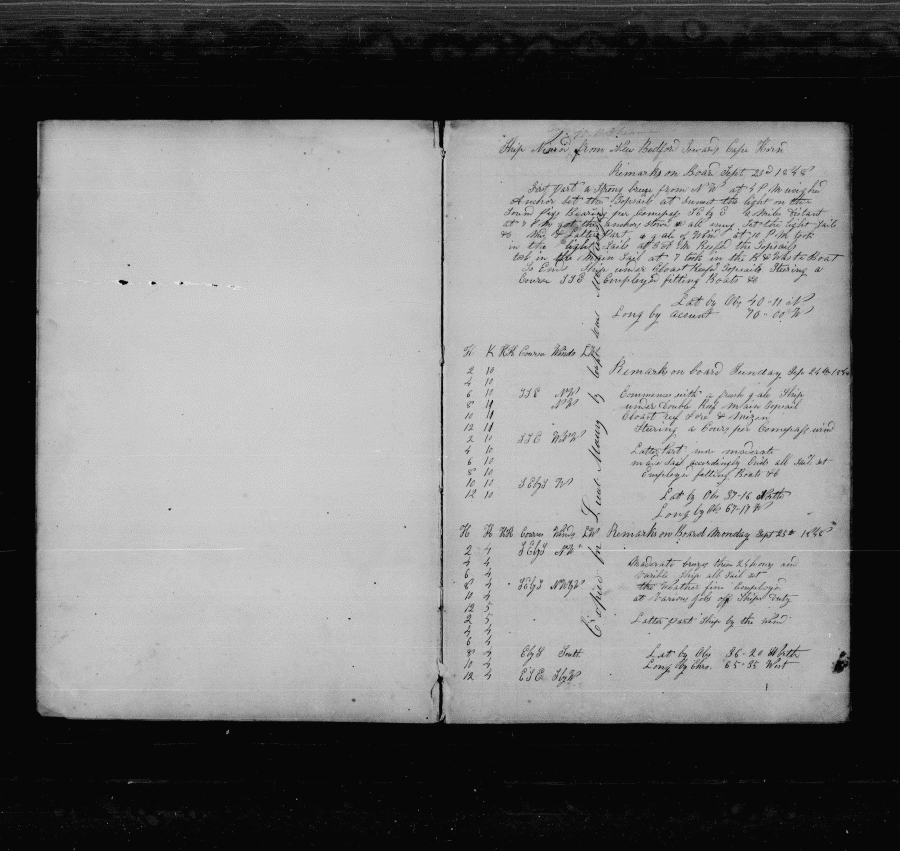 Ship from New Bedford Towards Cape Horn
Remarks on Board Sept 23rd 1848
First part a Strong breeze from NW at 4 P.M weighed
Anchor set the Topsail at Sunset the light on the
Sound Pigs Bearing per Compass SE by E 4 Miles distant
at 7 P.M got the anchors stow & all Set the light Sails
& Latter Part a gale of Wind at 10 P.M took
in the light Sails at A.M Reefd the Topsails
in the Main Sail at 7 took in the & Waist Boat
So Ends Ship under Close Reefd Topsails Steering a
Course SSE Employed fitting Boats &c
Lat by Obs 40-11 N
Long by account 70-00 W
H K HK Course Winds LW
Remarks on board Sunday Sep 24th 1848
2 10
4 10
6 10 SSE NW Commences with a fresh gale Ship
8 11 NW under Double Reef Main Topsail
10 11 Close Reef Fore & Mizen
12 11 Steering a Cours per Compass wind
2 10 SSE WNW
4 10 Latter Part more moderate
6 10 made Sail accordingly Ends all Sail set
8 10 Employed fitting Boats &c
10 10 SEbyS W
12 10 Lat by Obs 37-16 North
Long by Obs 67-17 W
H K HK Course Winds LW Remarks on Board Monday Sept 25th 1848
2 4 SEbyS NW
4 4 Moderate breezes these 24 hours and
6 4 varible Ship all Sail set
8 4 SEbyS NWbyW the Weather fine Employed
10 4 at Various Jobs of Ships Duty
12 5
2 5 Latter part Ship by the wind
4 4
6 4
8 4 EbyS South Lat by Obs 36-20 North
10 4 Long by Chro. 65-35 West
12 4 ESE SbyW
Copied for Lieut Maury by Capt